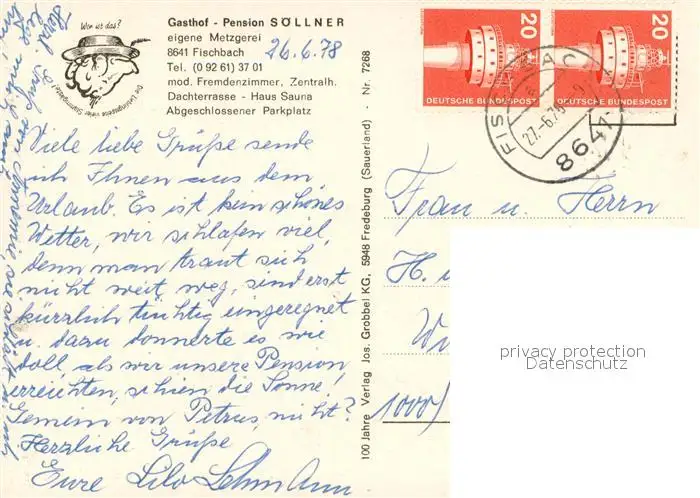 Wer ist das?
Gasthof - Pension SÖLLNER
eigene Metzgerei
8641 Fischbach
26.6.78
Tel. (0 92 61) 37 01
mod. Fremdenzimmer, Zentralh.
Dachterrasse - Haus Sauna
Abgeschlossener Parkplatz
20
DEUTSCHE BUNDESPOST
20
DEUTSCHE BUNDESPOST
27.-6.78
8641
Viele liebe Grüße sende
ich Ihnen aus dem
Urlaub. Es ist kein schönes
Wetter, wir schlafen viel,
denn man traut sich
nicht weit weg, sind erst
kürzlich tüchtig eingeregnet
u. dazu donnerte es wie
doll, als wir unsere Pension
erreichten, schien die Sonne.
Gemein von Petrus, nicht?
Herzliche Grüße
Eure Lilo Lehmann
100 Jahre Verlag Jos. Grobbel KG, 5948 Fredeburg (Sauerland) - Nr. 7268
Frau u. Herrn
H.
1000/
privacy protection
Datenschutz